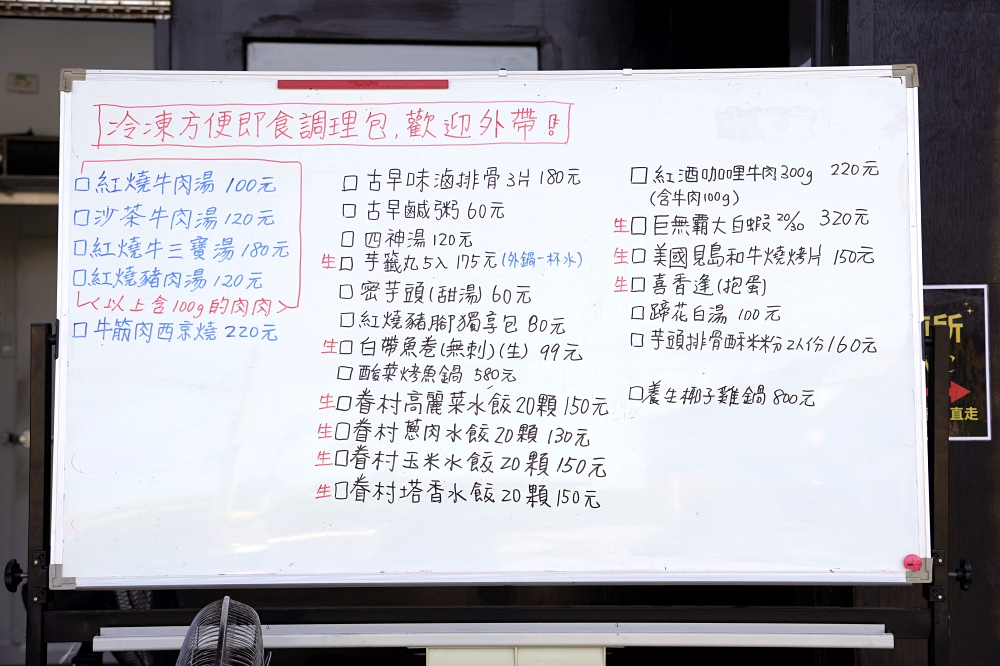 冷凍方便即食調理包,歡迎外帶!
□紅燒牛肉湯 100元
□沙茶牛肉湯 120元
□紅燒牛三寶湯 180元
□紅燒豬肉湯 120元
<以上含100g的肉肉>
□牛筋肉西京燒 220元
□古早味滷排骨3片 180元
□古早鹹粥 60元
□四神湯 120元
生□芋籤丸5入 175元(外鍋一杯水)
□密芋頭(甜湯) 60元
□紅燒豬腳獨享包 80元
生□白帶魚卷(無刺)(生) 99元
□酸菜烤魚鍋 580元
生□眷村高麗菜水餃20顆150元
生□眷村蔥肉水餃20顆 130元
生□眷村玉米水餃20顆150元
生□眷村塔香水餃20顆150元
□紅酒咖哩牛肉300g 220元
(含牛肉100g)
生□巨無霸大白蝦 20/30 320元
生□美國見島和牛燒烤片 150元
生□喜香逢(抱蛋)
□蹄花白湯 100元
□芋頭排骨酥米粉2人份160元
□養生椰子雞鍋 800元
所
C
直走